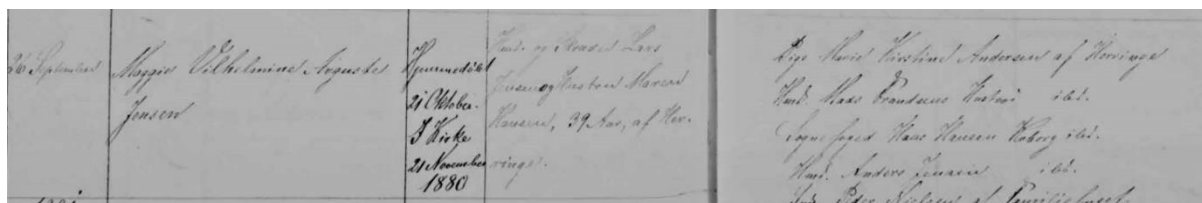 26 September
Maggie Vilhelmine Auguste
Jensen
Hjemmedøbt
21 Oktober.
I Kirke
21 November
1880
Huusm. og Skræder Lars
Jensen og Hustru Maren
Hansen, 39 Aar, af Her-
ringe.
Pige Marie Kirstine Andersen af Herringe
Huusm. Mads Frandsens Hustru ibid.
Sognefoged Hans Hansen Koborg ibd.
Huusm. Anders Jensen ibd.
Peder Nielsen af